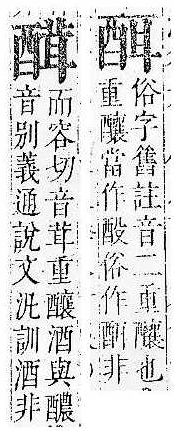 俗字舊註音二重釀也
重釀當作酘俗作非
而容切音茸重釀酒與醲
音別義通說文汎訓酒非